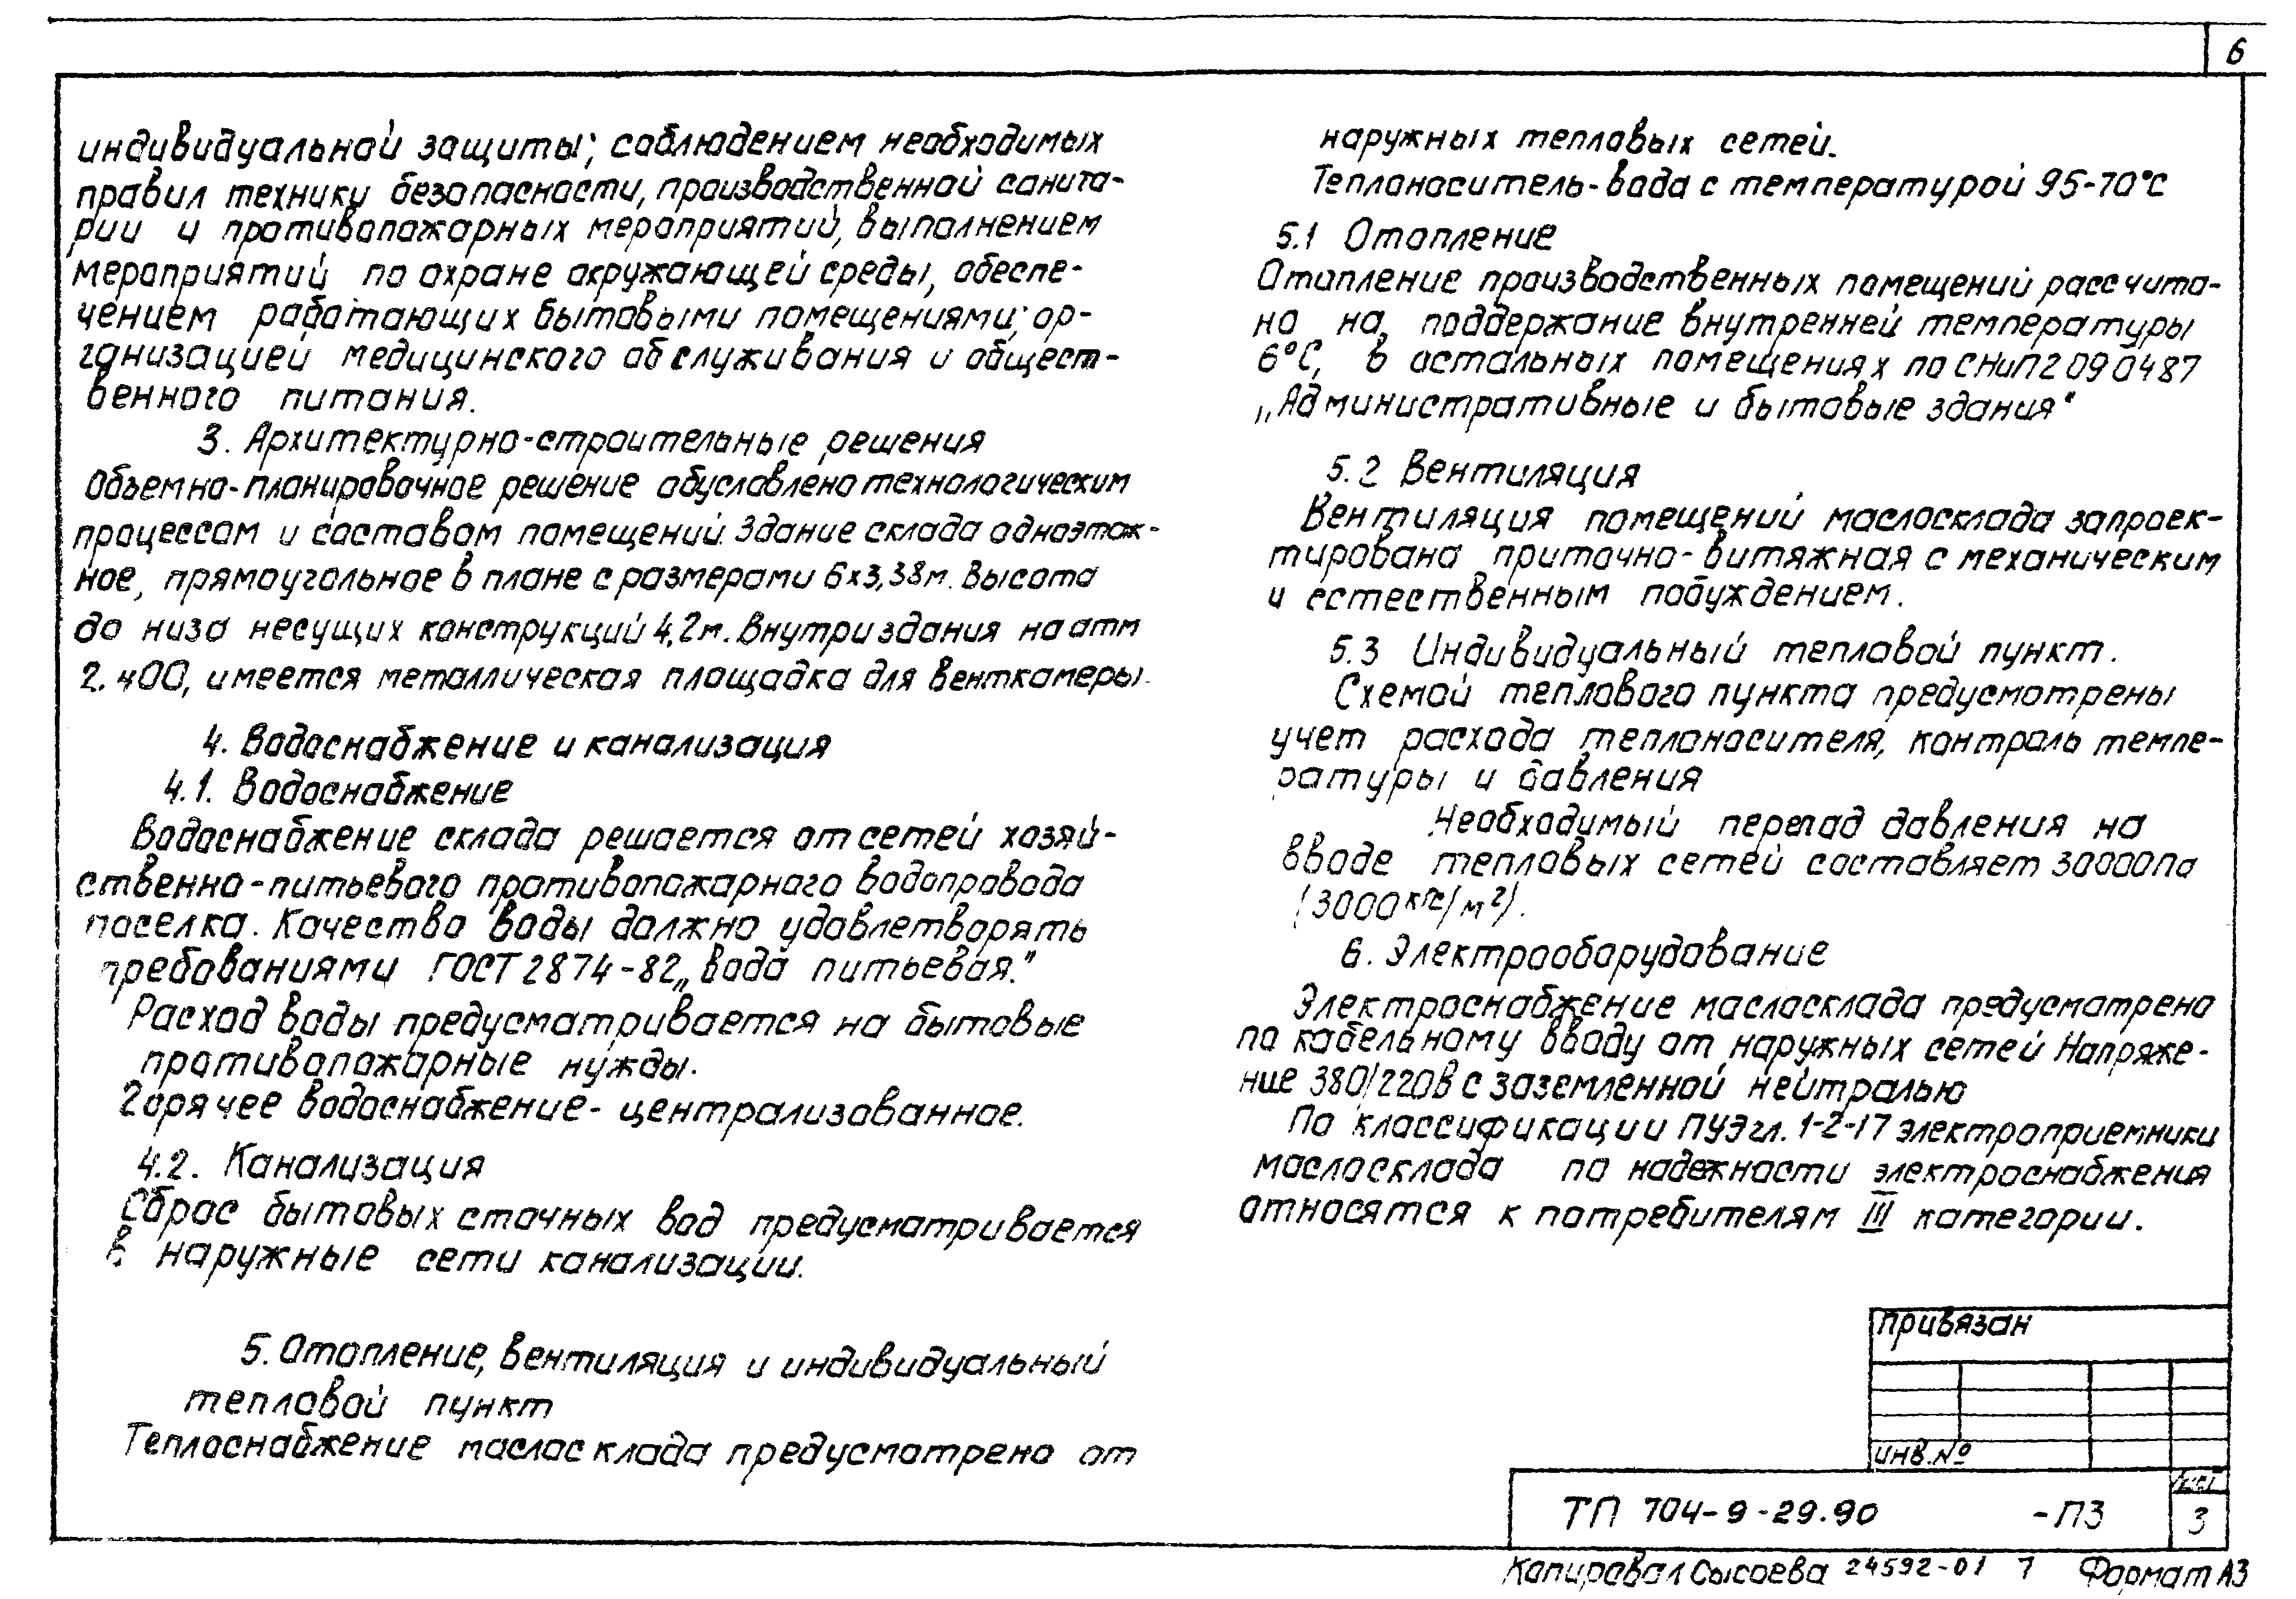 6
индивидуальной защиты; соблюдением необходимых
правил технику безопасности, производственной санита-
рии и противопожарных мероприятий, выполнением
мероприятий по охране окружающей среды, обеспе-
чением работающих бытовыми помещениями; ор-
ганизацией медицинского обслуживания и общест-
венного питания.
3. Архитектурно-строительные решения
Объемно-планировочное решение обусловлено технологическим
процессом и составом помещений. Здание склада одноэтаж-
ное, прямоугольное в плане с размерами 6х3,38м. Высота
до низа несущих конструкций 4,2м. Внутри здания на отм
2.400, имеется металлическая площадка для венткамеры.
4. Водоснабжение и канализация
4.1. Водоснабжение
Водоснабжение склада решается от сетей хозяй-
ственно-питьевого противопожарного водопровода
поселка. Качество воды должно удовлетворять
требованиями ГОСТ 2874-82 „Вода питьевая."
Расход воды предусматривается на бытовые
противопожарные нужды.
Горячее водоснабжение- централизованное.
4.2. Канализация
Сброс бытовых сточных вод предусматривается
в наружные сети канализации.
5. Отопление, вентиляция и индивидуальный
тепловой пункт
Теплоснабжение маслосклада предусмотрено от
наружных тепловых сетей.
Теплоноситель-вода с температурой 95-70°С
5.1 Отопление
Отопление производственных помещений рассчита-
но на поддержание внутренней температуры
6°С, в остальных помещениях по СНиП 2 09 04 87
„Административные и бытовые здания"
5.2 Вентиляция
Вентиляция помещений маслосклада запроек-
тирована приточно-витяжная с механическим
и естественным побуждением.
5.3 Индивидуальный тепловой пункт.
Схемой теплового пункта предусмотрены
учет расхода теплоносителя, контроль темпе-
ратуры и давления
Необходимый перепад давления на
вводе тепловых сетей составляет 30000Па
(3000 кгс/м²).
6. Электрооборудование
Электроснабжение маслосклада предусмотрено
по кабельному вводу от наружных сетей Напряже-
ние 380/220В с заземленной нейтралью
По классификации ПУЭ гл. 1-2-17 электроприемники
маслосклада по надежности электроснабжения
относятся к потребителям III категории.
Привязан
ИНВ.№
ТП 704-9-29.90 -ПЗ
Лист
3
Копировал Сысоева 24592-01 7 Формат А3